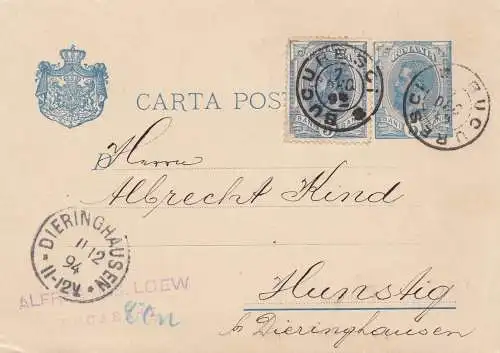 CARTA POST
BUCURESCI
7
ROMANIA
BUCURESCI
BANI
BANI
Herrn
Albrecht Kind
DIERINGHAUSEN
11 12
94
11-12V.
LOEW
Hunstig
b/ Dieringhausen